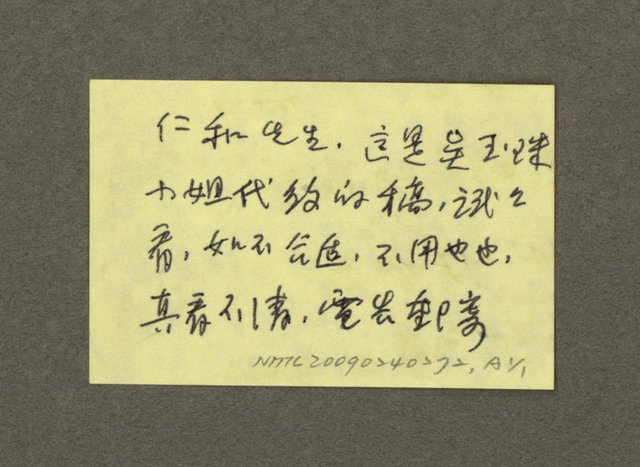 仁和先生,這是吳玉珠
小姐代約的稿,試之
看,如不合适,不用也也,
真看不清,電告重寄
NMTL20090240272, A 1/1